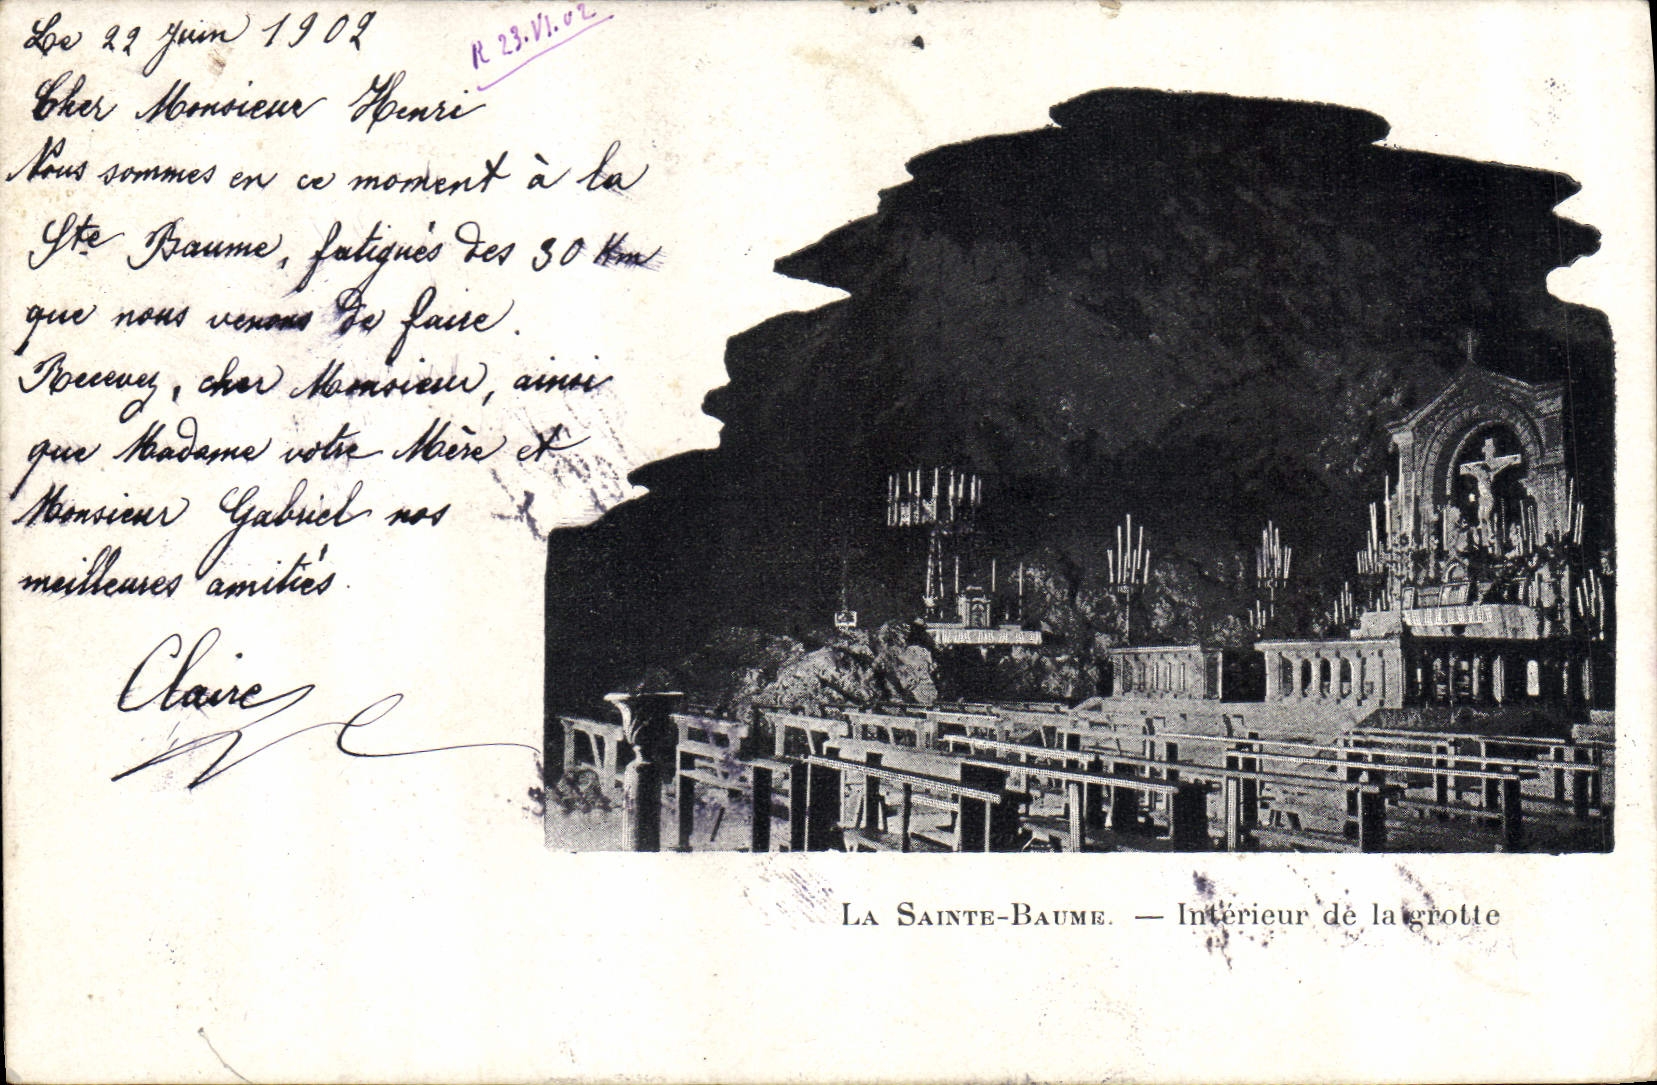 Le 22 Juin 1902
R 23.VI.02
Cher Monsieur Henri
Nous sommes en ce moment à la
Ste Baume, fatigués des 30 Km
que nous venons de faire.
Recevez, cher Monsieur, ainsi
que Madame votre Mère et
Monsieur Gabriel nos
meilleures amitiés.
Claire
La Sainte-Baume. — Intérieur de la grotte